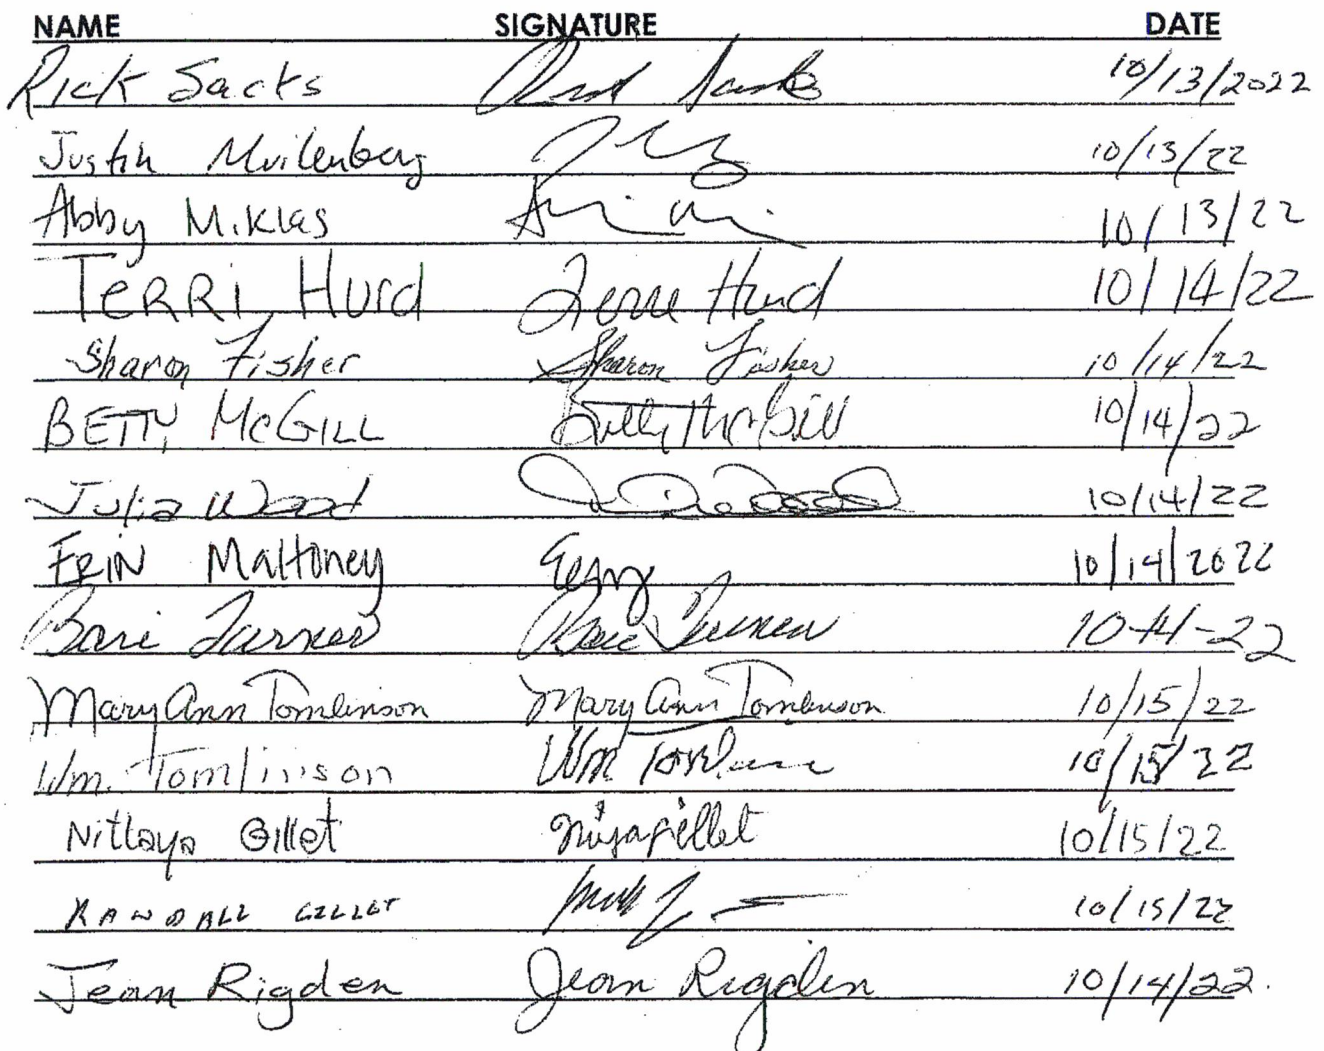 NAME SIGNATURE DATE
Rick Sacks 10/13/2022
Justin Muilenberg 10/13/22
Abby Miklas 10/13/22
TERRI Hurd Terri Hurd 10/14/22
Sharon Fisher Sharon Fisher 10/14/22
BETTY McGILL Betty McGill 10/14/22
Julia Wood Julia Wood 10/14/22
ERIN Maltoney 10/14/2022
Bari Turner Bari Turner 10-14-22
Mary Ann Tomlinson Mary Ann Tomlinson 10/15/22
Wm. Tomlinson Wm Tomlinson 10/15/22
Nittaya Gillet 10/15/22
RANDALL GILLET 10/15/22
Jean Rigden Jean Rigden 10/14/22.